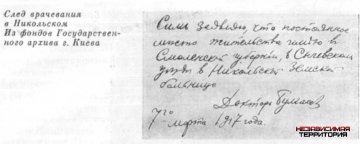 След врачевания
в Никольском
Из фондов Государствен-
ного архива г. Киева
Сим заявляю, что постоянное
место жительства имею в
Смоленской губернии, в Сычевском
уезде в Никольская земская
больница
Доктор
7го марта 1917 года.
НЕЗАВИСИМАЯ
ТЕРРИТОРИЯ